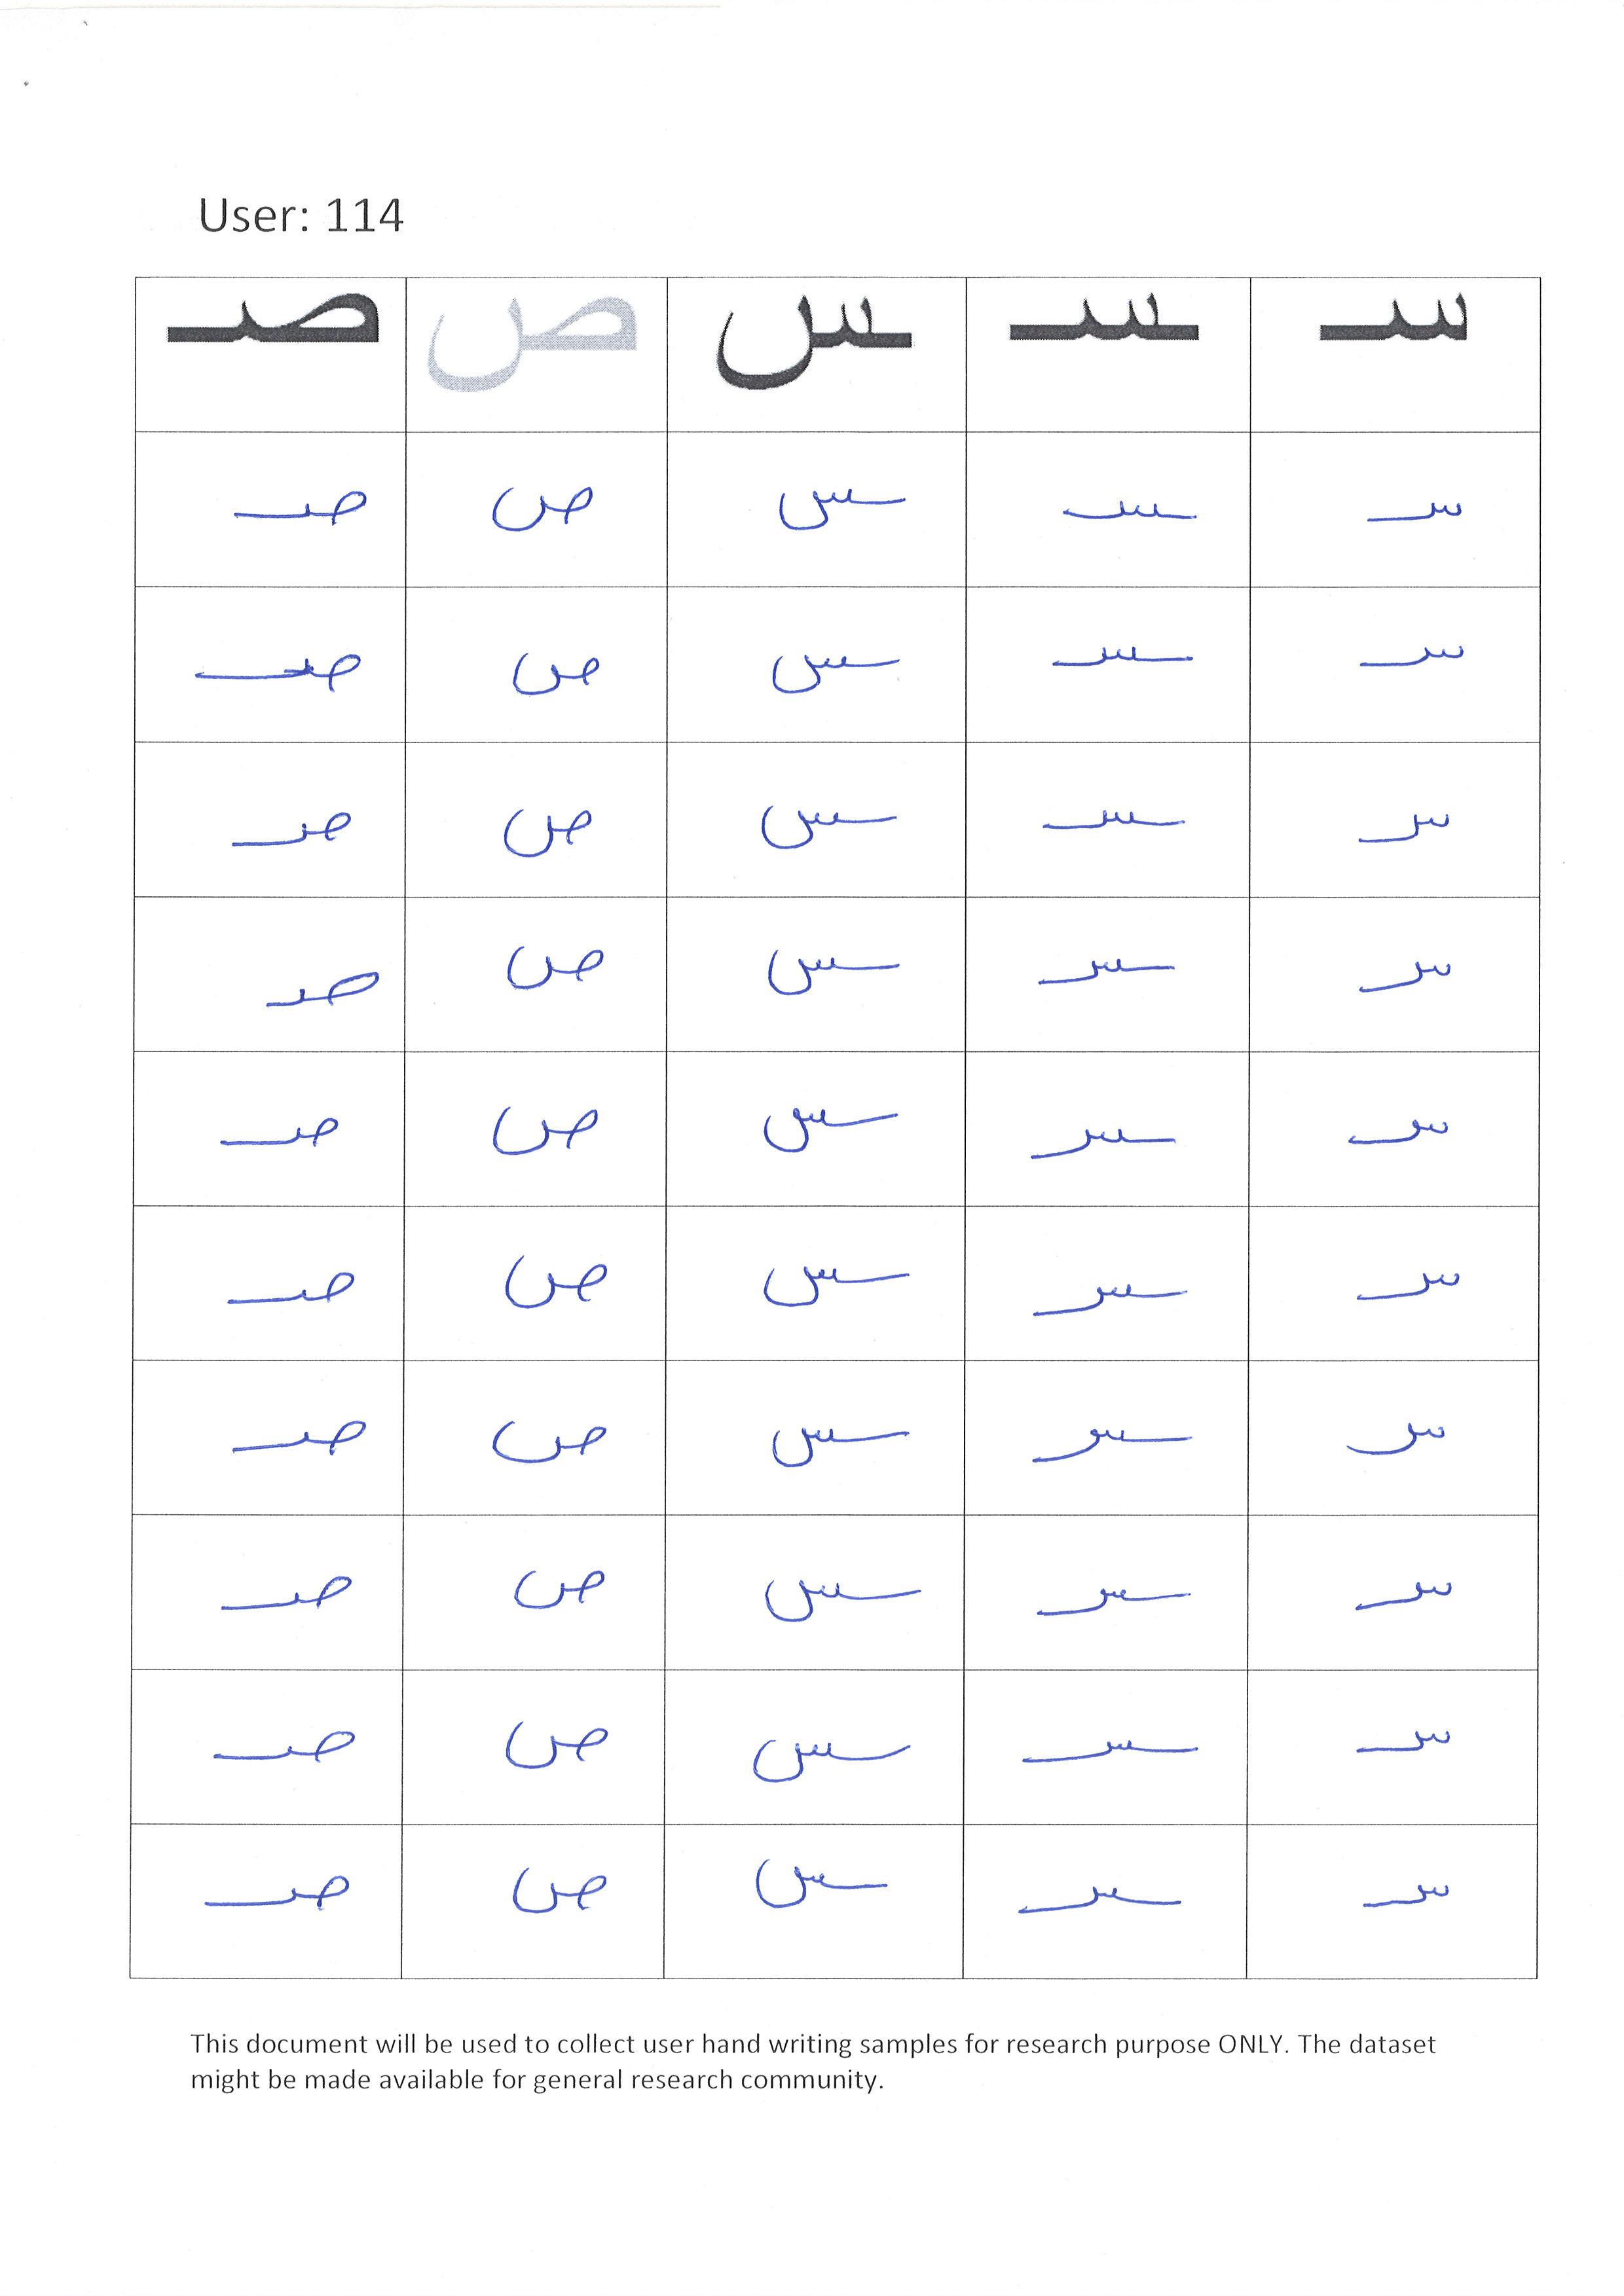 User: 114
سـ ـسـ ـس ص صـ
سـ ـسـ ـس ص صـ
سـ ـسـ ـس ص صـ
سـ ـسـ ـس ص صـ
سـ ـسـ ـس ص صـ
سـ ـسـ ـس ص صـ
سـ ـسـ ـس ص صـ
سـ ـسـ ـس ص صـ
سـ ـسـ ـس ص صـ
سـ ـسـ ـس ص صـ
سـ ـسـ ـس ص صـ
This document will be used to collect user hand writing samples for research purpose ONLY. The dataset
might be made available for general research community.